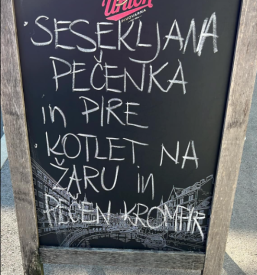 Union
PIVOVARNA
· SESEKLJANA
PEČENKA
in PIRE
· KOTLET NA
ŽARU in
PEČEN KROMPIR